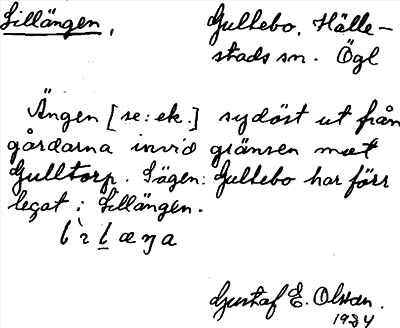 Lillängen, Gullebo, Hälle-
stads sn. Ögl
Ängen [se: ek.] sydöst ut från
gårdarna invid gränsen mot
Gulltorp. Sägen: Gullebo har förr
legat i Lillängen.
Gustaf E. Olsson.
1934